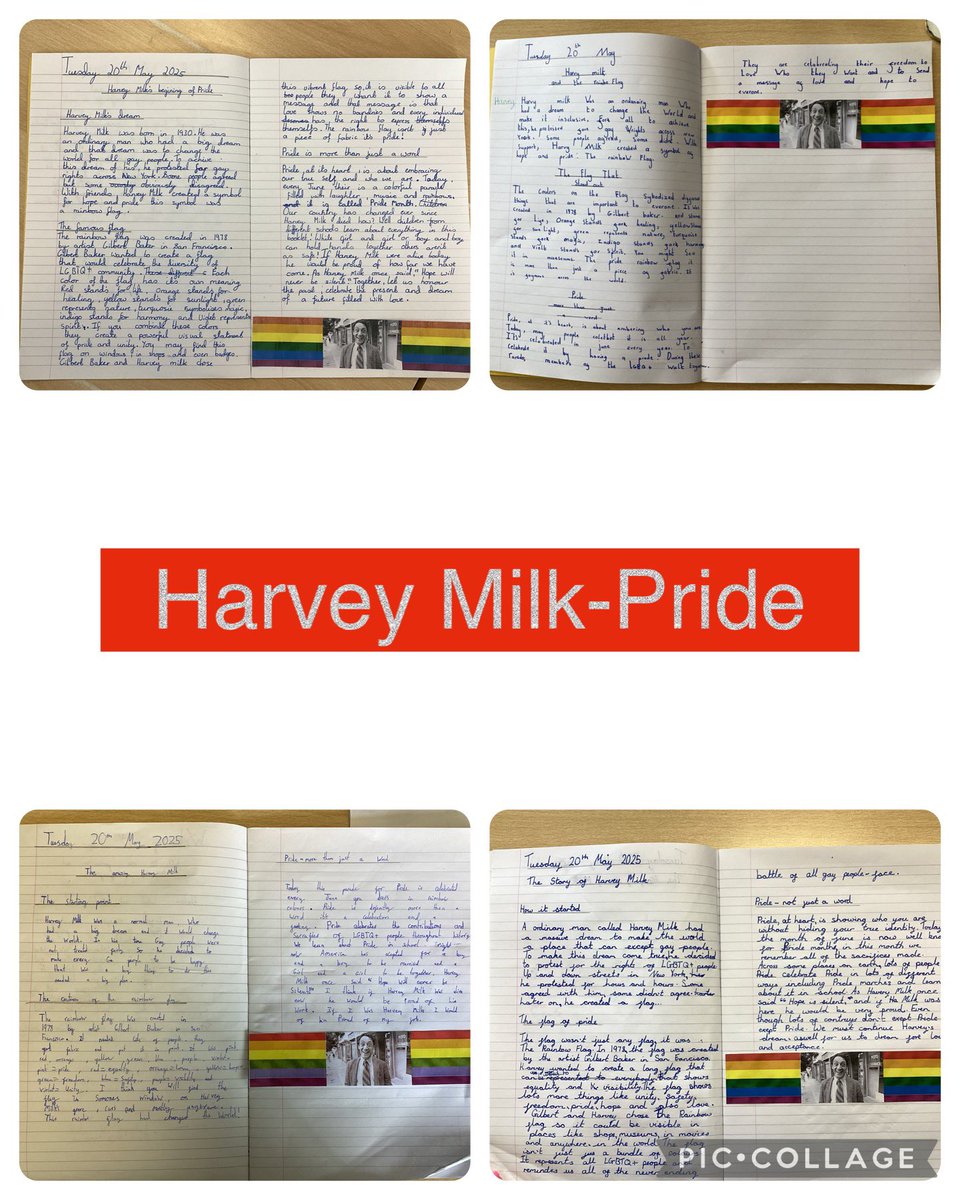 Tuesday 20th May 2025
Harvey Milk's begining of Pride
Harvey Milk's dream
Harvey Milk was born in 1930. He was
an ordinary man who had a big dream
and that dream was to change the
world for all gay people. To achieve
this dream of his, he protested for gay
rights across New York. Some people agreed
but some obviously disagreed.
With friends, Harvey Milk created a symbol
for hope and pride this symbol was
a rainbow flag.
The famous flag
The rainbow flag was created in 1978
by artist Gilbert Baker in San Francisco.
Gilbert Baker wanted to create a flag
that would celebrate the diversity of
LGBTQ+ community. Each
color of the flag has its own meaning
Red stands for life, Orange stands for
healing, yellow stands for sunlight, green
represents nature, turquoise symbolises magic,
indigo stands for harmony and violet represents
spirit. If you combine these colors
they create a powerful visual statement
of pride and unity. You may find this
flag on windows in shops and even badges.
Gilbert Baker and Harvey milk chose
this vibrant flag so it is visible to all
people they want it to show a
message and that message is that
love shows no boundries and every individual
has the right to express
themselves. The rainbow flag isn't just
a piece of fabric its pride!
Pride is more than just a word
Pride, at its heart, is about embracing
our true self and who we are. Today,
every June their is a colorful parade
filled with laughter, music and rainbows,
it is called 'Pride Month.
Our country has changed ever since
Harvey Milk died how? Well children from
different schools learn about everything in this
booklet! While girl and girl or boy and boy
can hold hands together others aren't
as safe! If Harvey Milk were alive today
he would be proud of how far we have
come. As Harvey Milk once said," Hope will
never be silent." Together, let us honour
the past celebrate the present and dream
of a future filled with love.
Tuesday 20th May
Harvey milk
and the rainbow Flag
Harvey
Harvy milk Was an ordinary man Who
had a dream to change the World and
make it inclusive, for all to achieve
this, he protested for gay Wrights across new
York. some people agreed, some didnt. With
Support, Harvy Milk created a symbol of
hope and pride. The rainbow Flag.
The Flag That
Stood out
The Colors on the Flag Symbolised different
things that are important to everyone. It was
created in 1978 by Gilbert baker.
for life, Orange Stands for healing, yellow stands
for sun light, green represents nature, turquoise
stands for magic, Indigo Stands for harmony
and Violet Stands for Spirit. You might see
it in a museum. The pride rainbow flag it
is more than just a piece of fabric. It
is the world.
Pride
more than just a word
Pride, at it's heart, is about embracing who you are
Today, many people celebrat it all year.
It's celebrated in june every year. To
celebrate it by having a pride During these
Parades, members of the LGBTQ+ Walk together.
They are celebrating their freedom to
love Who they Want and to Send
a message of love and hope to
everone.
Harvey Milk-Pride
Tuesday 20th May 2025
The amazing Harvey Milk
The Starting point
Harvey Milk was a normal man Who
had a big dream and it would change
the World. In his time Gay people were
not treated fairly So he decided to
make every Gay people to be happy.
That was a big thing to do this
needed a big plan.
The creation of the rainbow flag
The rainbow flag was created in
1978 by artist Gilbert Baker in San
Fransisco.
This rainbow flag had changed the World!
Pride-more than just a Word
Today the parade for Pride is celebrated
every June
colours. Pride is definitly more than a
Word it's a celebration and a
Pride celebrates the contributions and
Sacrafies of LGBTQ+ people throughout history
We learn about Pride in school
now America has excepted for a boy
and boy to be married and a
Girl and a girl to be together, Harvey
Milk once said " Hope Will never be
Silent". I think if Harvey Milk was alive
now he would be Proud of his
Work. If I was Harvey Milk I would
of been Proud of my job.
Tuesday 20th May 2025
The Story of Harvey Milk
How it started
A ordinary man called Harvey Milk had
a massive dream to make the world
a place that can except gay people.
To make this dream come true, he decided
to protest for the rights of LGBTQ+ people
Up and down streets in New York,
he protested for hours and hours. Some
agreed with him, some didn't agree.
later on, he created a flag...
The flag of pride
The flag wasn't just any flag, it was
The Rainbow Flag. In 1978, the flag was created
by the artist Gilbert Baker in San Francisco.
Harvey wanted to create a long flag that
can to everybody that shows
equality and visibility. The flag shows
lots more things like unity, safety,
freedom, pride, hope and also love.
Gilbert and Harvey chose the Rainbow
flag so it could be visible in
places like shops, museums, in movies
and anywhere in the world. The flag
isn't just a bundle of
It represents all LGBTQ+ people and
remindes us all of the never ending
battle of all gay people face.
Pride-not just a word
Pride, at heart, is showing who you are
without hiding your true identity. Today
the month of june is now well know
for Pride month, in this month we
remember all of the sacrifices made.
Across some places on earth, lots of people
celebrate Pride in lots of different
ways including Pride marches and learn
about it in school. As Harvey Milk once
said "Hope is silent," and if Milk was
here he would be very proud. Even
though lots of contryes don't exept Pride
exept Pride. We must continue Harvey's
dream, aswell for us to dream for love
and acceptance.
PIC•COLLAGE